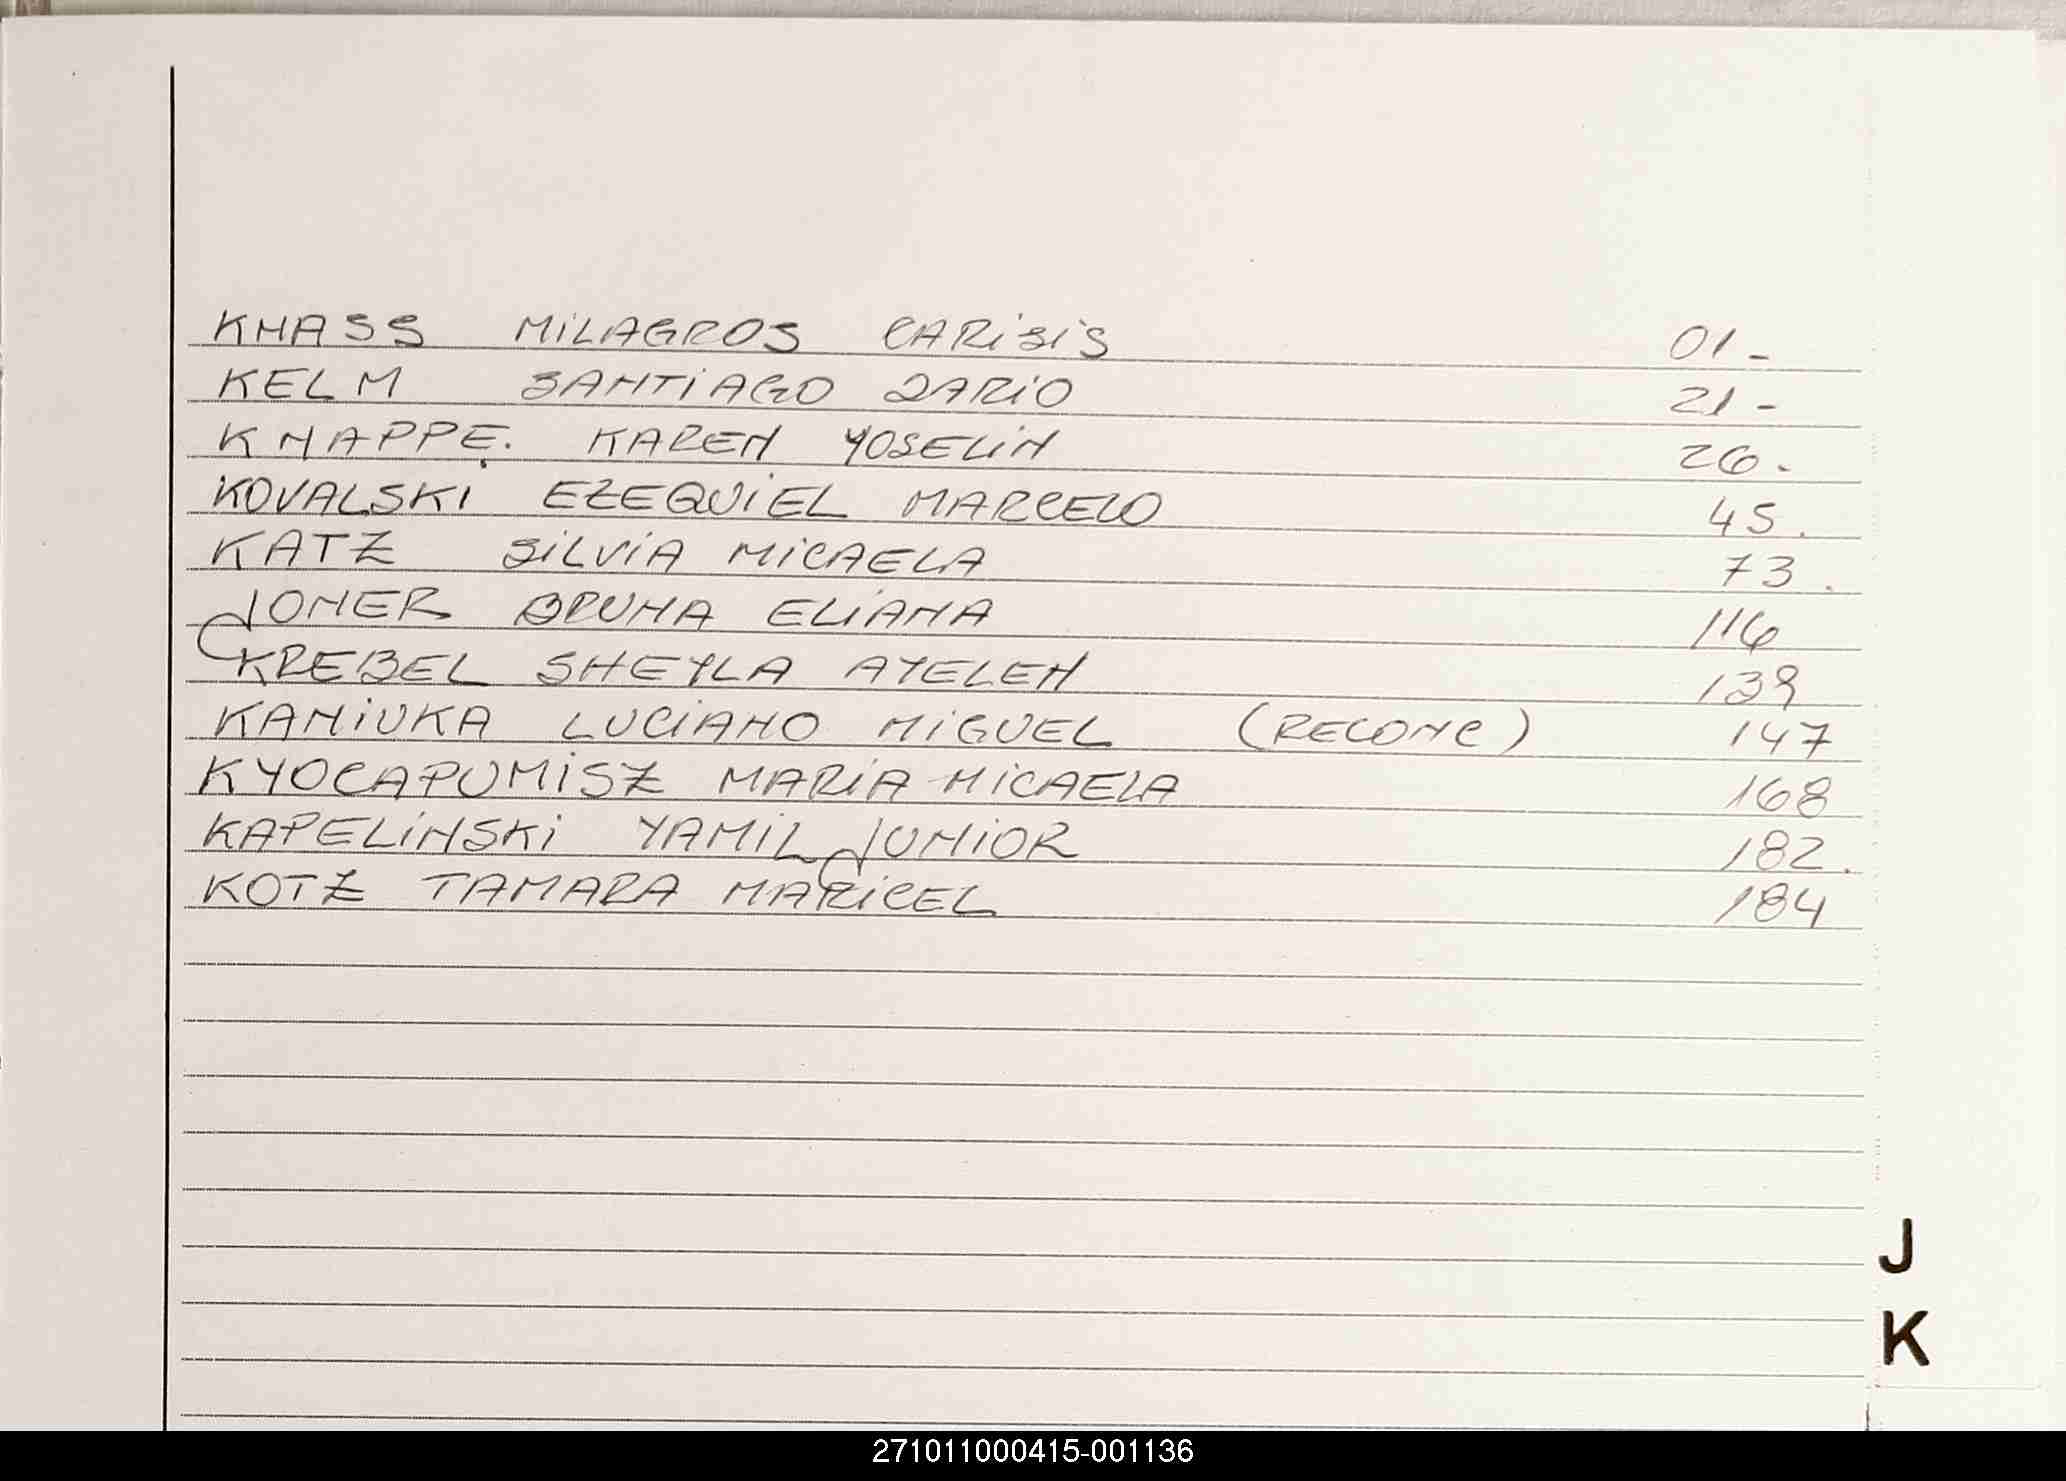 KNASS MILAGROS CARISIS 01-
KELM SANTIAGO DARIO 21-
KNAPPE. KAREN YOSELIN 26.
KOVALSKI EZEQUIEL MARCELO 45.
KATZ SILVIA MICAELA 73.
JONER BRUNA ELIANA 116
KREBEL SHEYLA AYELEN 139
KANIUKA LUCIANO MIGUEL (RECONC) 147
KYOCAPUMISZ MARIA MICAELA 168
KAPELINSKI YAMIL JUNIOR 182.
KOTZ TAMARA MARICEL 184
J
K
271011000415-001136